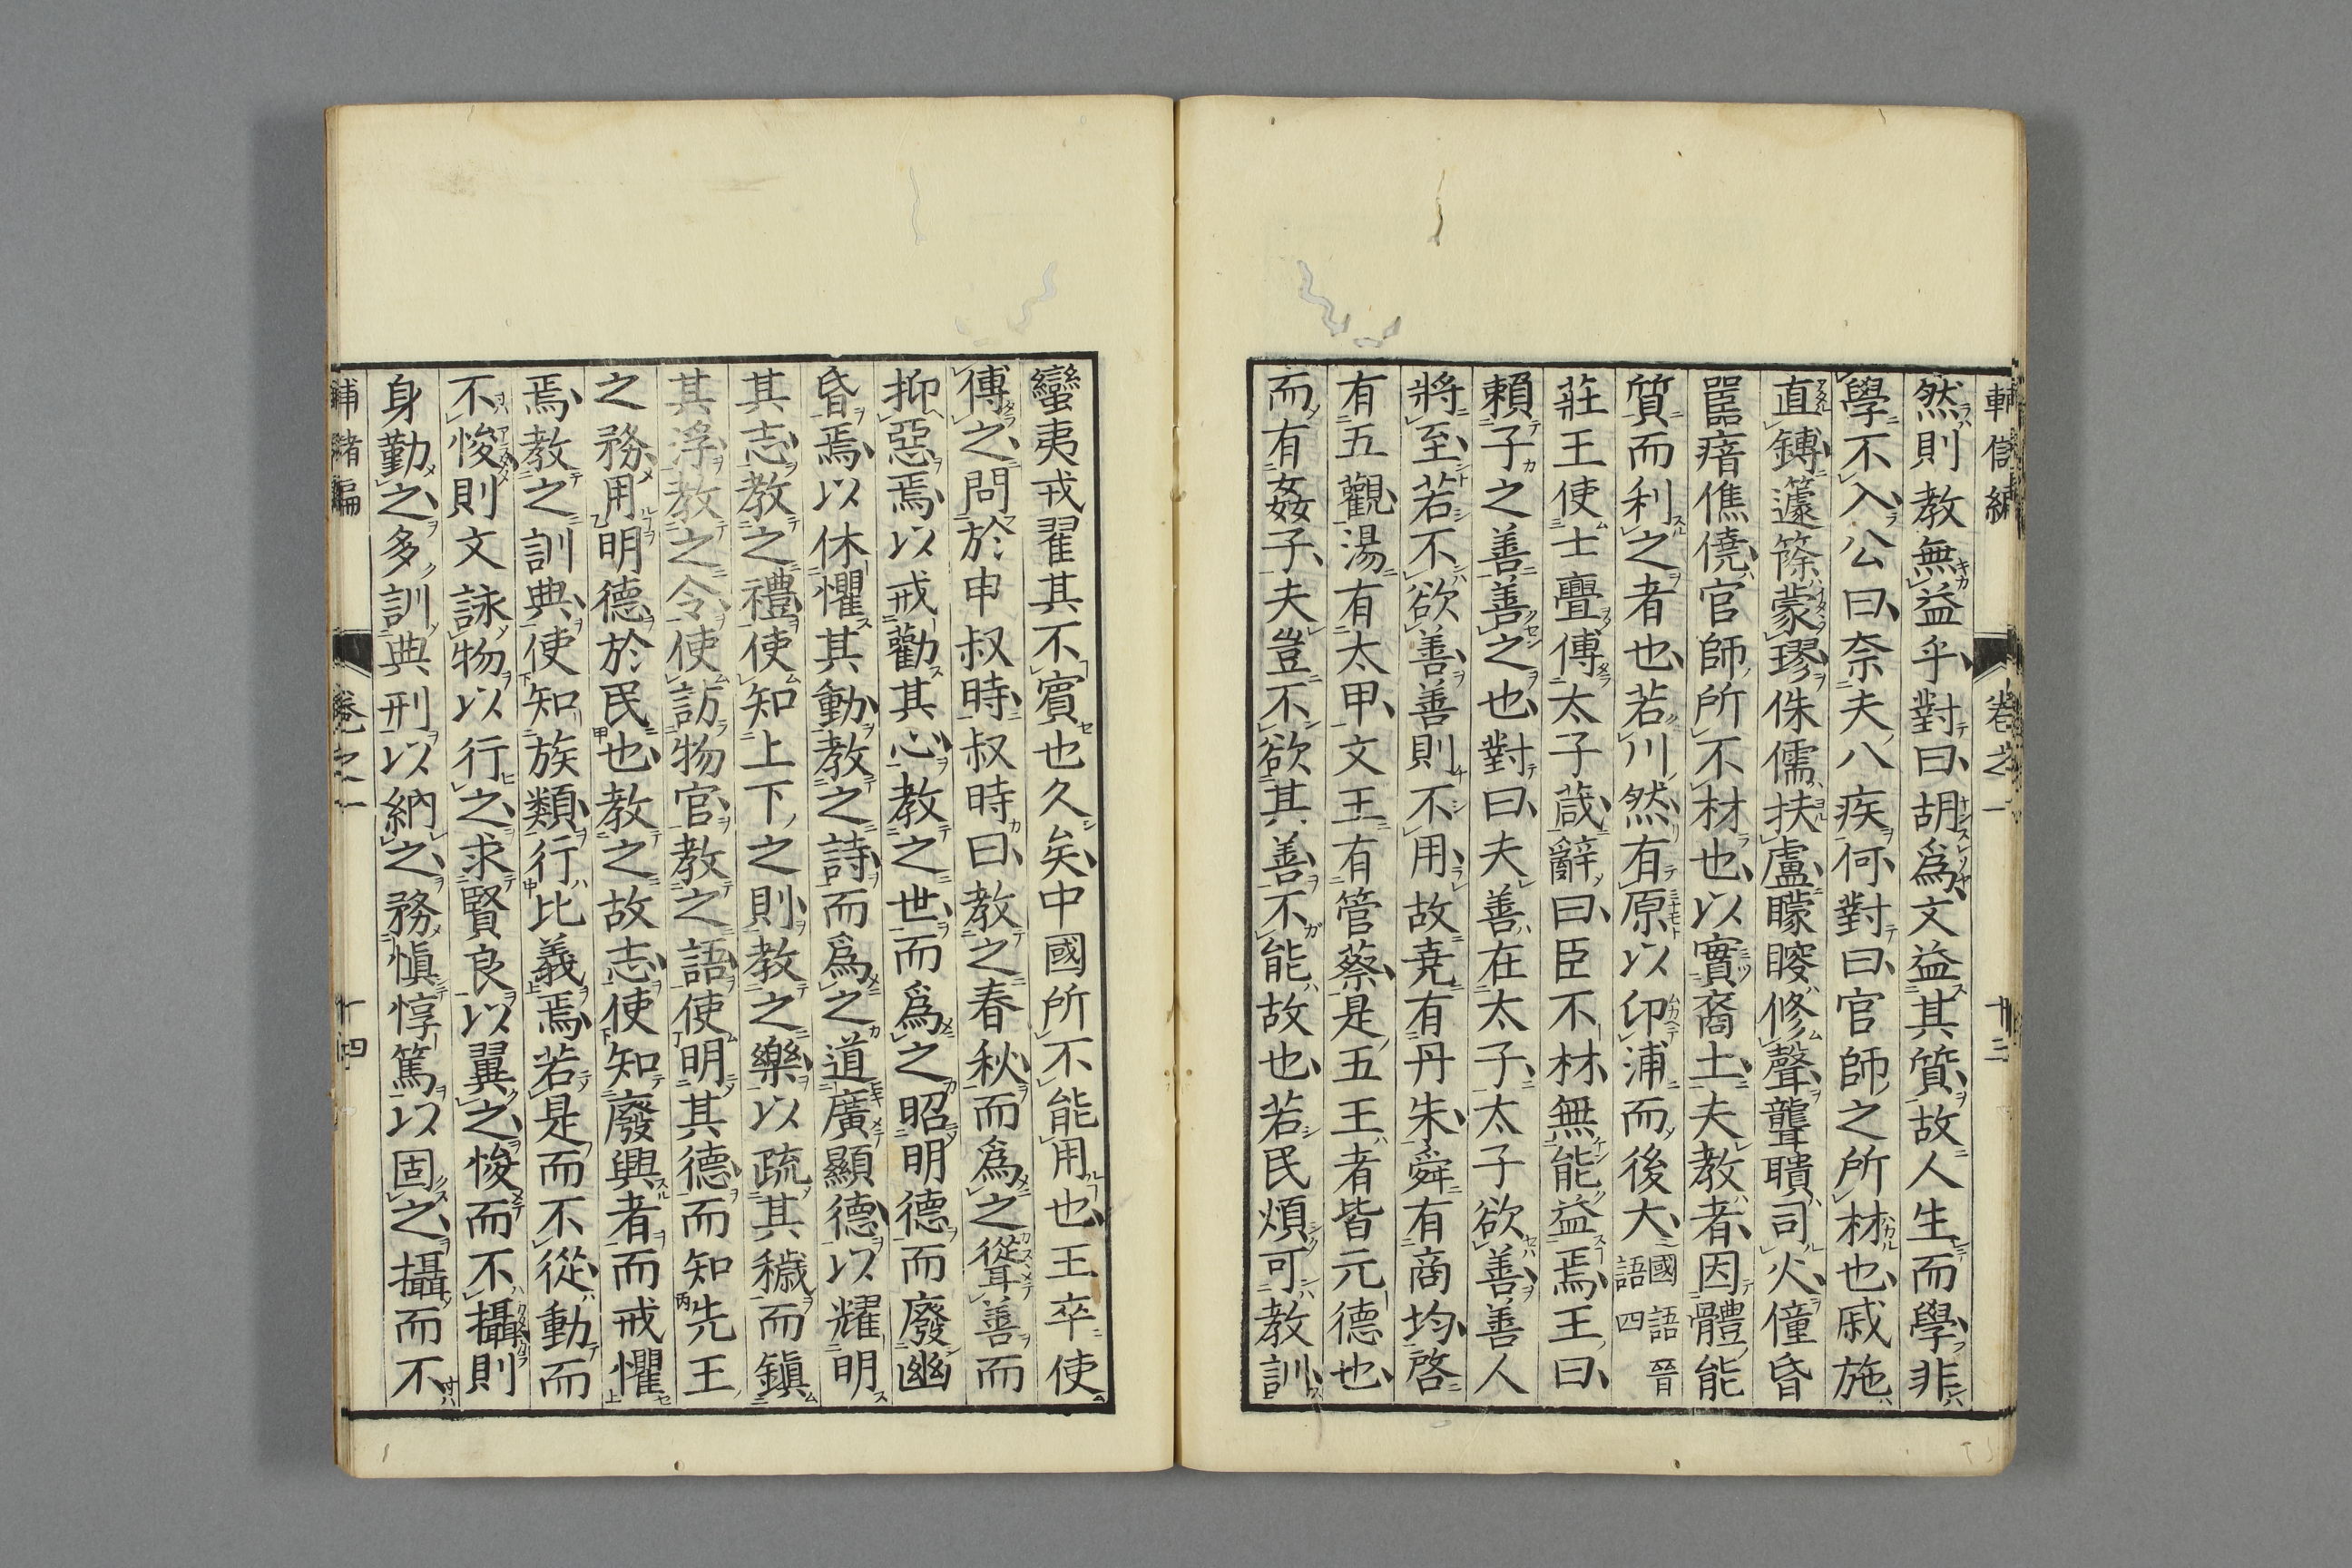 然則教無益乎對曰胡爲文益其質故人生而學非
學不入公曰奈夫八疾何對曰官師之所材也戚施
直鎛蘧篨蒙璆侏儒扶盧矇瞍修聲聾聵司火僮昏
嚚瘖僬僥官師所不材也以實裔土夫教者因體能
質而利之者也若川然有原以卬浦而後大國語晉語四
莊王使士亹傅太子葴辭曰臣不材無能益焉王曰
賴子之善善之也對曰夫善在太子太子欲善善人
將至若不欲善善則不用故堯有丹朱舜有商均啓
有五觀湯有太甲文王有管蔡是五王者皆元德也
而有姦子夫豈不欲其善不能故也若民煩可教訓
蠻夷戎翟其不賓也久矣中國所不能用也王卒使
傅之問於申叔時叔時曰教之春秋而爲之聳善而
抑惡焉以戒勸其心教之世而爲之昭明德而廢幽
昏焉以休懼其動教之詩而爲之道廣顯德以耀明
其志教之禮使知上下之則教之樂以疏其穢而鎭
其浮教之令使訪物官教之語使明其德而知先王
之務用明德於民也教之故志使知廢興者而戒懼
焉教之訓典使知族類行比義焉若是而不從動而
不悛則文詠物以行之求賢良以翼之悛而不攝則
身勤之多訓典刑以納之務愼惇篤以固之攝而不
卷之一
十四